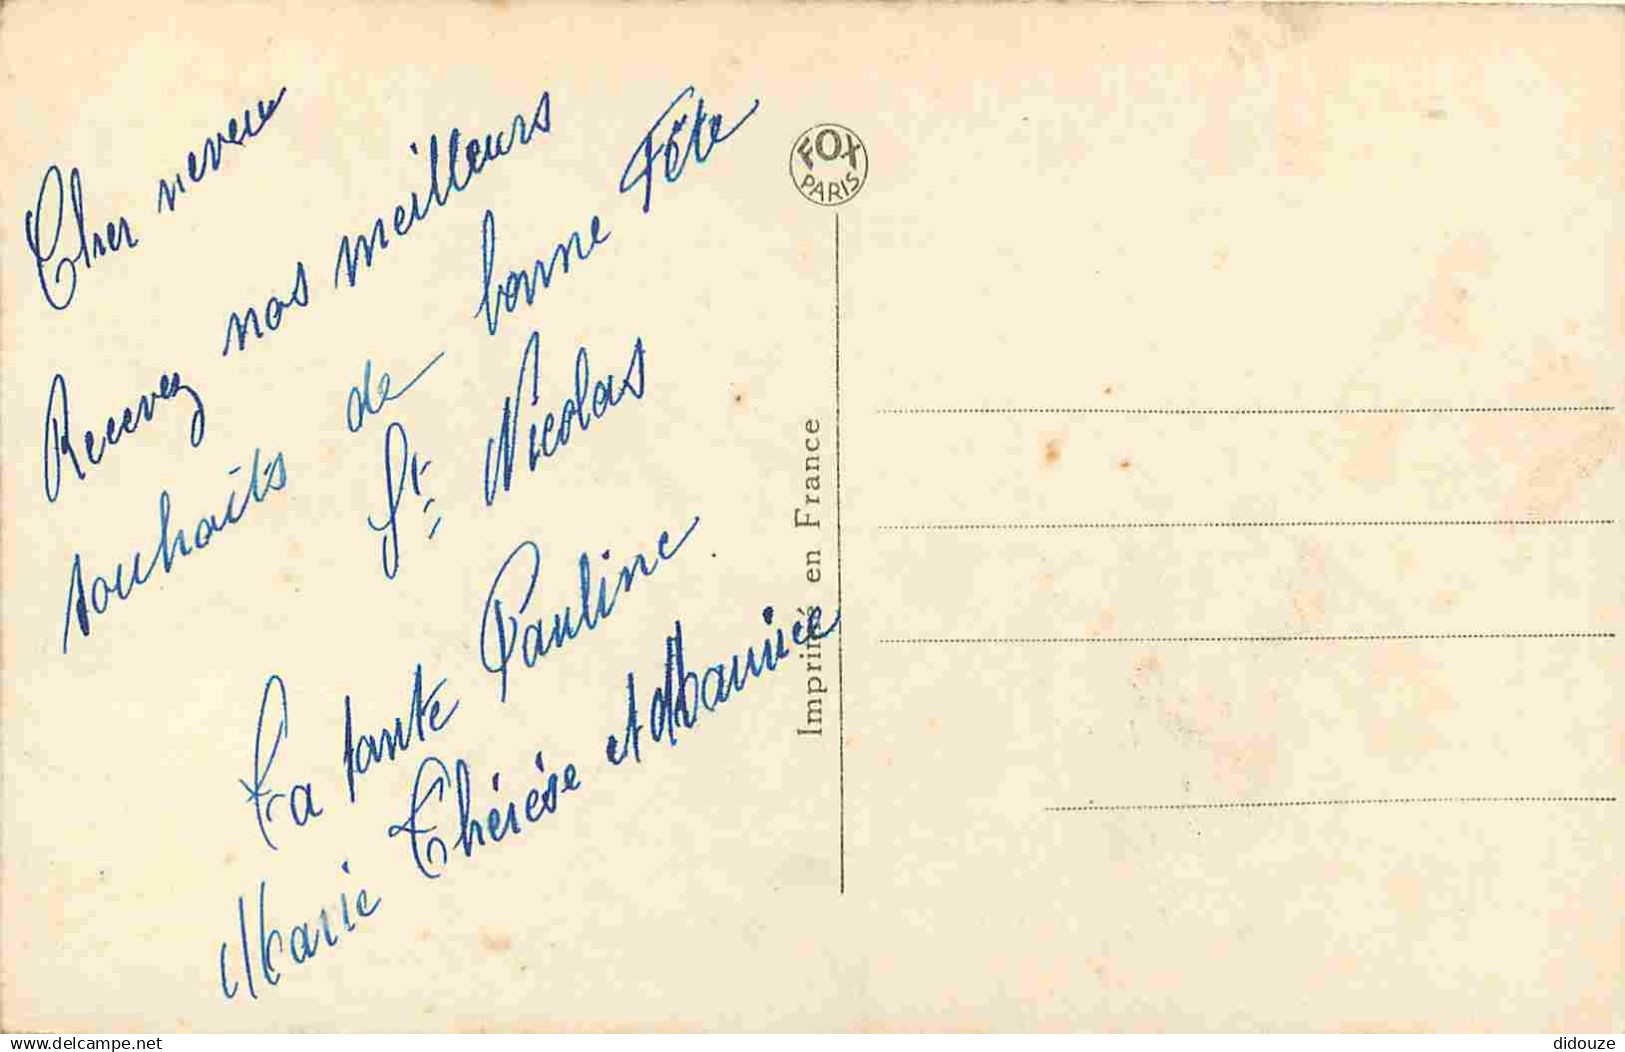 Cher neveu
Recevez nos meilleurs
souhaits de bonne Fête
St. Nicolas
Ta tante Pauline
Marie Thérèse et Maurice
FOX
PARIS
Imprimé en France
delcampe.net
didouze